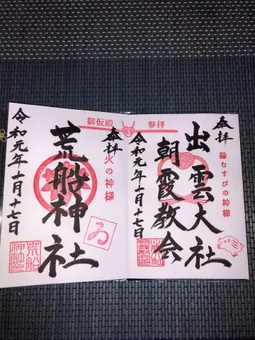 奉拝
縁むすびの神様
出雲大社
朝霞教会
令和元年十一月十七日
御仮殿 参拝
奉拝
火の神様
荒船神社
ゐ
令和元年十一月十七日